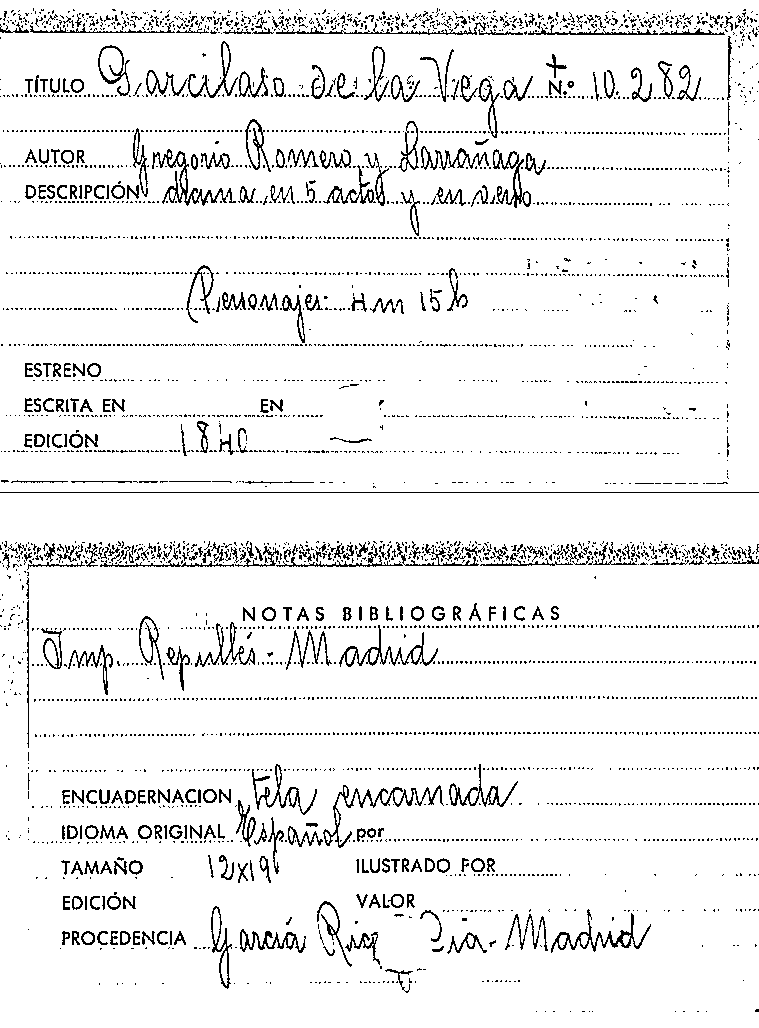 TÍTULO Garcilaso de la Vega N.º 10.282
AUTOR Gregorio Romero y Larrañaga
DESCRIPCIÓN drama en 5 actos y en verso
Personajes: 4m 15h
ESTRENO
ESCRITA EN EN
EDICIÓN 1840
NOTAS BIBLIOGRÁFICAS
Imp. Repullés - Madrid
ENCUADERNACION tela encarnada
IDIOMA ORIGINAL Español por
TAMAÑO 12x19 ILUSTRADO POR
EDICIÓN VALOR
PROCEDENCIA García Rico Cia - Madrid